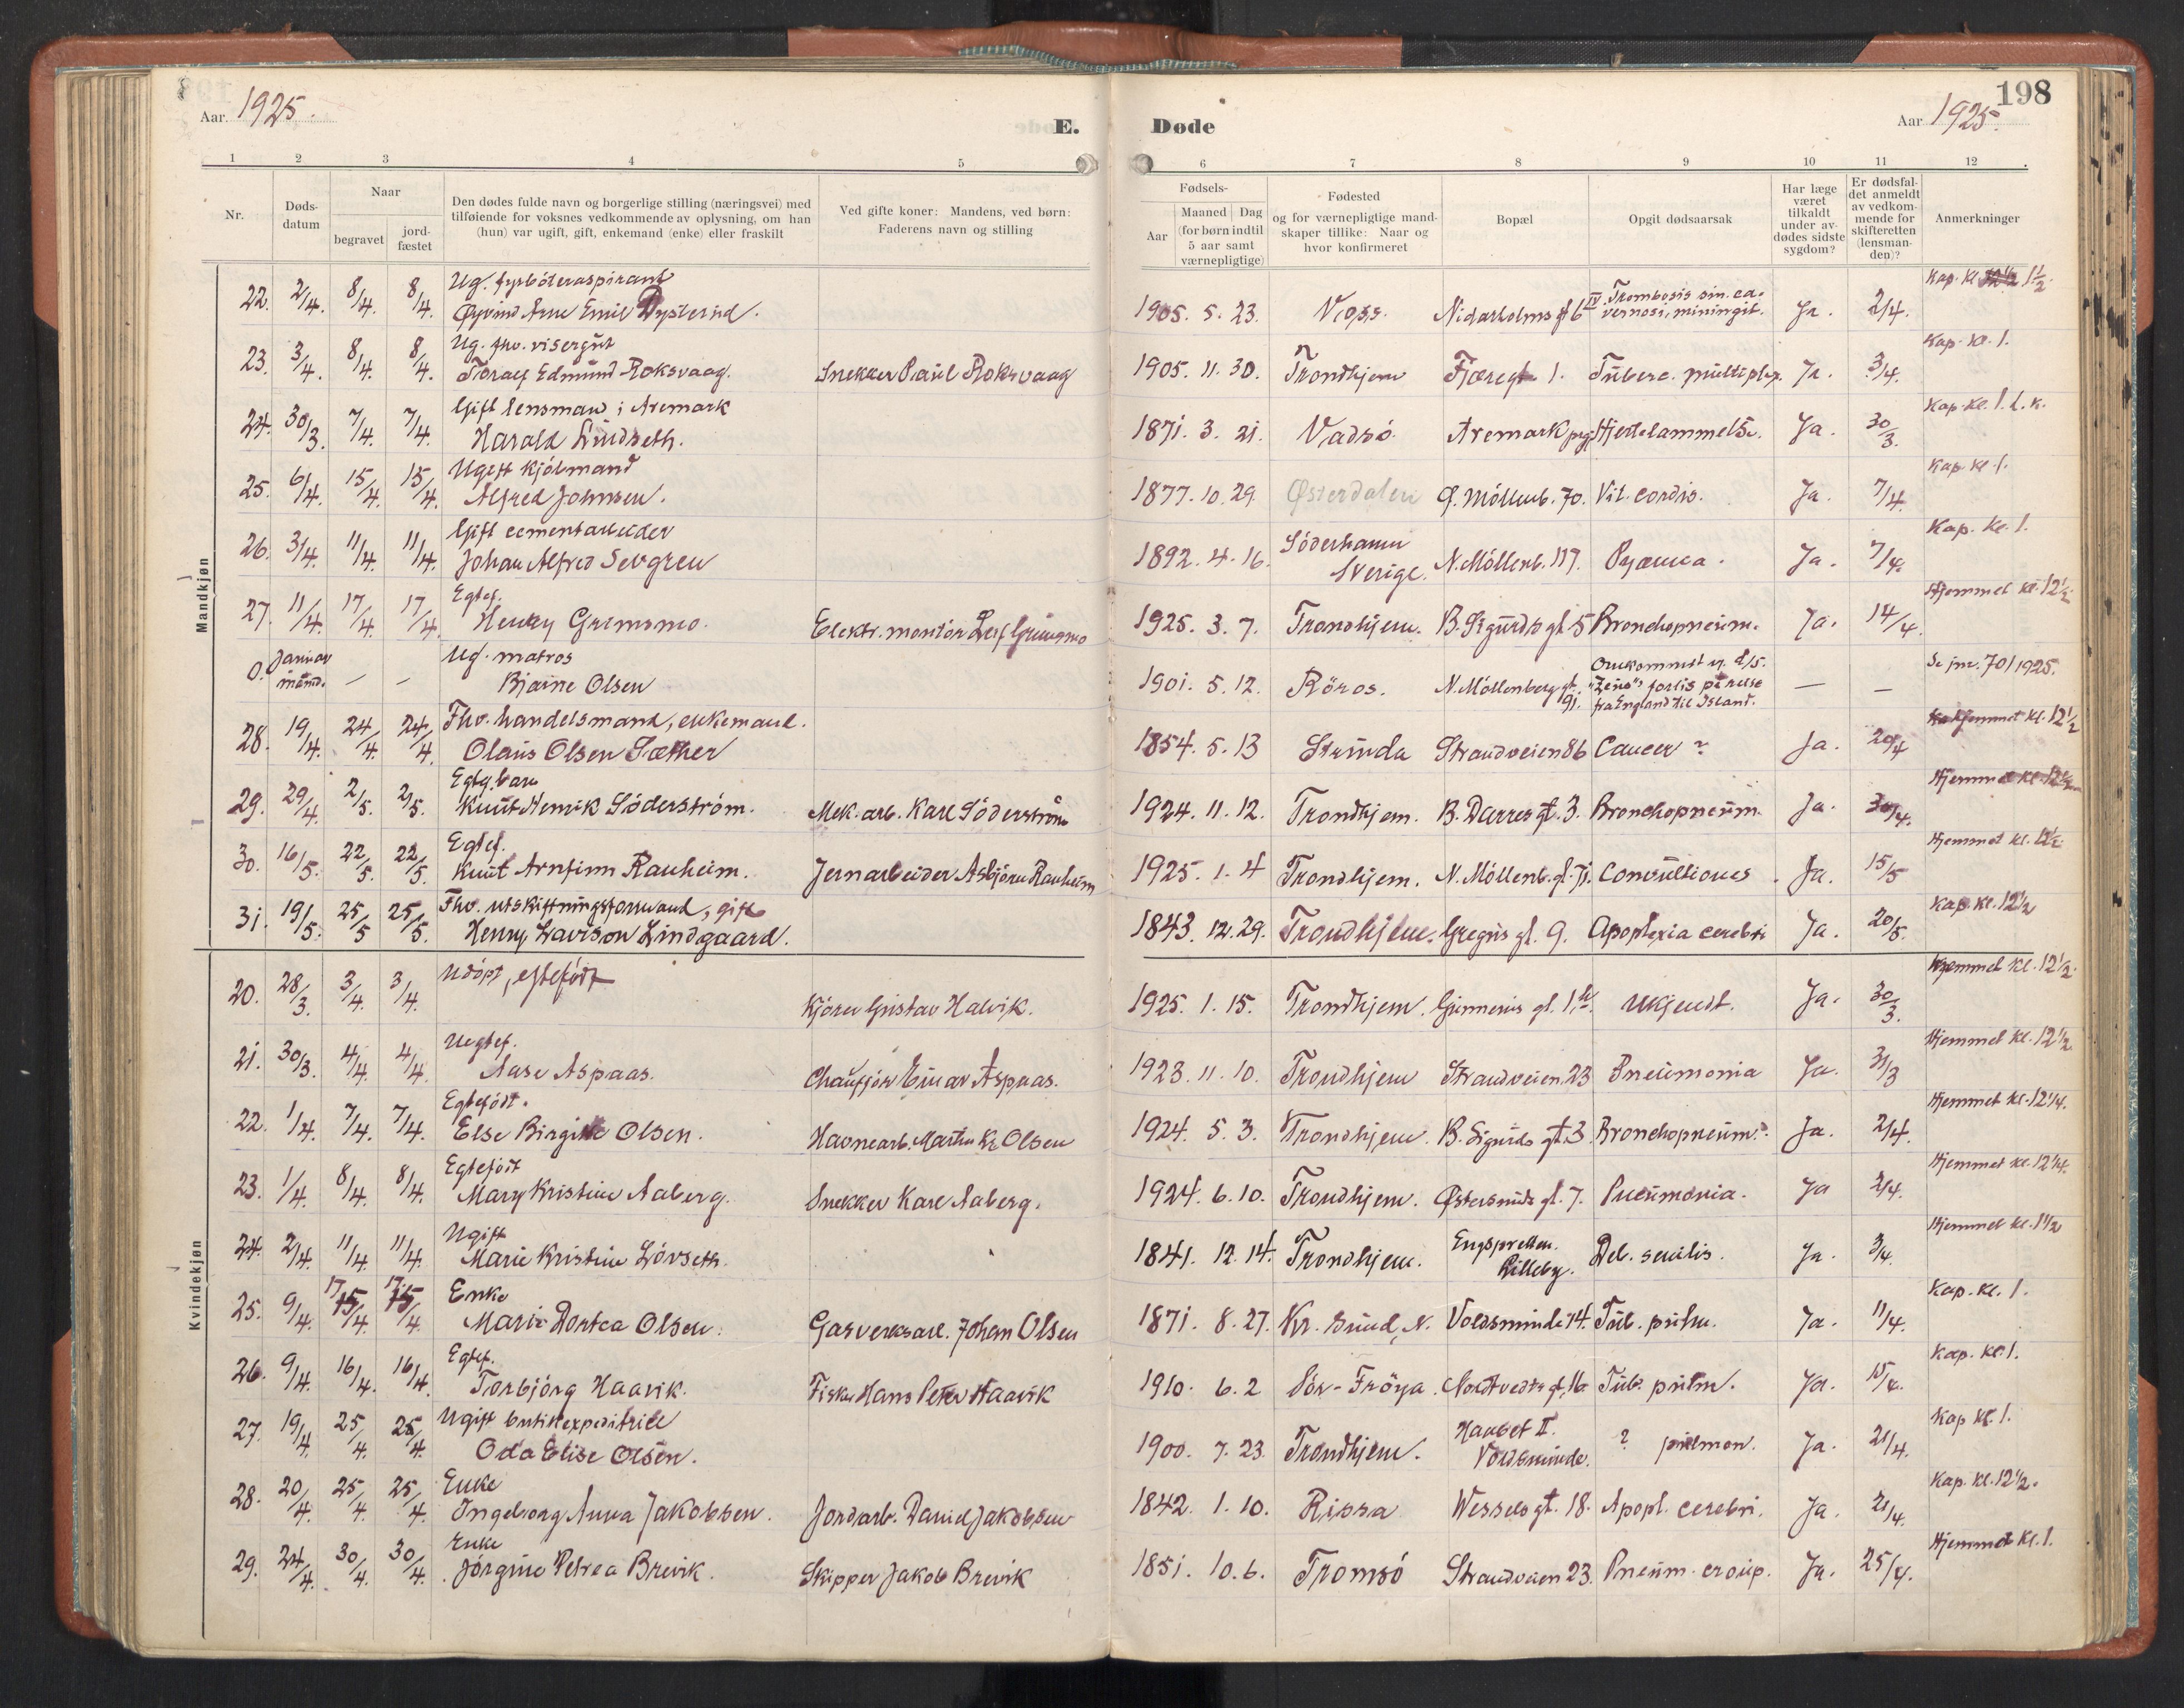 Aar 1925.
E.
Døde
198
Aar 1925.
1 2 3 4 5 6 7 8 9 10 11 12
Nr.
Døds-
datum
Naar
begravet
jord-
fæstet
Den dødes fulde navn og borgerlige stilling (næringsvei) med
tilføiende for voksnes vedkommende av oplysning, om han
(hun) var ugift, gift, enkemand (enke) eller fraskilt
Ved gifte koner: Mandens, ved børn:
Faderens navn og stilling
Fødsels-
Aar
Maaned Dag
(for børn indtil
5 aar samt
værnepligtige)
Fødested
og for værnepligtige mand-
skaper tillike: Naar og
hvor konfirmeret
Bopæl
Opgit dødsaarsak
Har læge
været
tilkaldt
under av-
dødes sidste
sygdom?
Er dødsfal-
det anmeldt
av vedkom-
mende for
skifteretten
(lensman-
den)?
Anmerkninger
Mandkjøn
Ug. fyrbøteraspirant
22. 2/4. 8/4. 8/4. Øyvind Arne Emil 1905. 5. 23. Voss. Nidarholms gt 6 IV Trombosis sin. ca-
vernosi, miningit. Ja. 2/4. Kap. kl. 1½.
Ug. fhv. visergut
23. 3/4. 8/4. 8/4. Toralf Edmund Roksvaag. Snekker Paul Roksvaag 1905. 11. 30. Trondhjem Fjæregt 1. Tuberc. multiplex. Ja. 3/4. Kap. kl. 1.
Gift lensmand i Aremark
24. 30/3. 7/4. 7/4. Harald Lindseth. 1871. 3. 21. Vadsö Aremark prgj. Hjertelammelse. Ja. 30/3. Kap. kl. 1. L. K.
Ugift kjölmand
25. 6/4. 15/4. 15/4. Alfred Johnsen. 1877. 10. 29. Østerdalen Ø. Möllenb. 70. Vit. cordis. Ja. 7/4. Kap. kl. 1.
Gift cementarbeider
26. 3/4. 11/4. 11/4. Johan Alfred Sevgren 1892. 4. 16. Söderhamn
Sverige. N. Möllenb. 117. Pyæmia. Ja. 7/4. Kap. kl. 1.
Egtef.
27. 11/4. 17/4. 17/4. Henry Gremsmo. Elektr. montör Leif Grimsmo 1925. 3. 7. Trondhjem. B. Sigurds gt 5 Bronchopneum. Ja. 14/4. Hjemmet kl. 12½
Ug. matros
0. Januar
maand. — — Bjarne Olsen 1901. 5. 12. Röros. N. Möllenberg gt.
91. Omkommet v. d/s.
"Zeno"s forlis på reise
fra England til Island. — — Se jnr. 70/1925.
Fhv. handelsmand, enkemand.
28. 19/4. 24/4. 24/4. Olaus Olsen Sæther 1854. 5. 13 Strinda Strandveien 86 Cancer? Ja. 20/4 Hjemmet kl. 12½
Egtef. barn
29. 29/4. 2/5. 2/5. Knut Henrik Söderström. Mek. arb. Karl Söderström 1924. 11. 12. Trondhjem. B. Darres gt. 3. Bronchopneum. Ja. 30/4. Hjemmet kl. 12½
Egtef.
30. 16/5. 22/5. 22/5. Knut Arnfinn Rauheim. Jernarbeider Asbjörn Rauheim 1925. 1. 4 Trondhjem. N. Möllenb. gt. 71. Convultiones. Ja. 15/5 Hjemmet kl. 12½
Fhv. utskiftningsformand, gift
31. 19/5. 25/5 25/5. Henry Davison Lindgaard. 1843. 12. 29. Trondhjem. Gregus gt. 9. Apoplexia cerebri Ja. 20/5. Kap. kl. 12½
Kvindekjøn
20. 28/3. 3/4. 3/4. Udöpt, egtefödt Kjörer Gustav Halvik. 1925. 1. 15. Trondhjem. Gunnerus gt. 1 b. Ukjendt. Ja. 30/3. Hjemmet kl. 12½.
Uegtef.
21. 30/3. 4/4. 4/4. Aase Aspaas. Chauffør Einar Aspaas. 1923. 11. 10. Trondhjem Strandveien 23 Pneumonia Ja. 31/3 Hjemmet kl. 12½
Egtefödt.
22. 1/4. 7/4. 7/4. Else Birgitte Olsen. Havnearb. Martin Kr. Olsen 1924. 5. 3. Trondhjem. B. Sigurds gt 3. Bronchopneum. Ja. 2/4. Hjemmet kl. 12¼.
Egtefödt
23. 1/4. 8/4. 8/4. Mary Kristine Aaberg. Snekker Karl Aaberg. 1924. 6. 10. Trondhjem. Østersunds gt. 7. Pneumonia. Ja 2/4. Hjemmet kl. 12¼.
Ugift
24. 2/4. 11/4. 11/4. Marie Kristine Lövseth. 1841. 12. 14. Trondhjem.
Lilleby. Deb. senilis. Ja. 3/4. Hjemmet kl. 1½
Enke
25. 9/4. 17/4. 17/4. Marie Dortea Olsen. Gasverksarb. Johan Olsen 1871. 8. 27. Kr. sund, N. Voldsminde 14. Tub. pulm. Ja. 11/4. Kap. kl. 1.
Egtef.
26. 9/4. 16/4. 16/4. Torbjörg Haavik. Fisker Hans Peter Haavik 1910. 6. 2 Sör-Fröya. Nordtvedts gt. 16 Tub. pulm. Ja. 15/4. Kap. kl. 1.
Ugift butikexpeditrice
27. 19/4. 25/4. 25/4. Oda Elise Olsen. 1900. 7. 23. Trondhjem. Haabet II.
Voldsminde. ? pulmon. Ja. 21/4. Kap kl. 1.
Enke
28. 20/4. 25/4. 25/4. Ingeborg Anna Jakobsen. Jordarb. Daniel Jakobsen 1842. 1. 10. Rissa Wessels gt. 18. Apopl. cerebri. Ja. 21/4. Kap. kl. 12½.
Enke
29. 24/4. 30/4. 30/4. Jörgine Petrea Brevik. Skipper Jakob Brevik 1851. 10. 6. Tromsö Strandveien 23. Pneum. croup. Ja. 25/4. Hjemmet kl. 1.